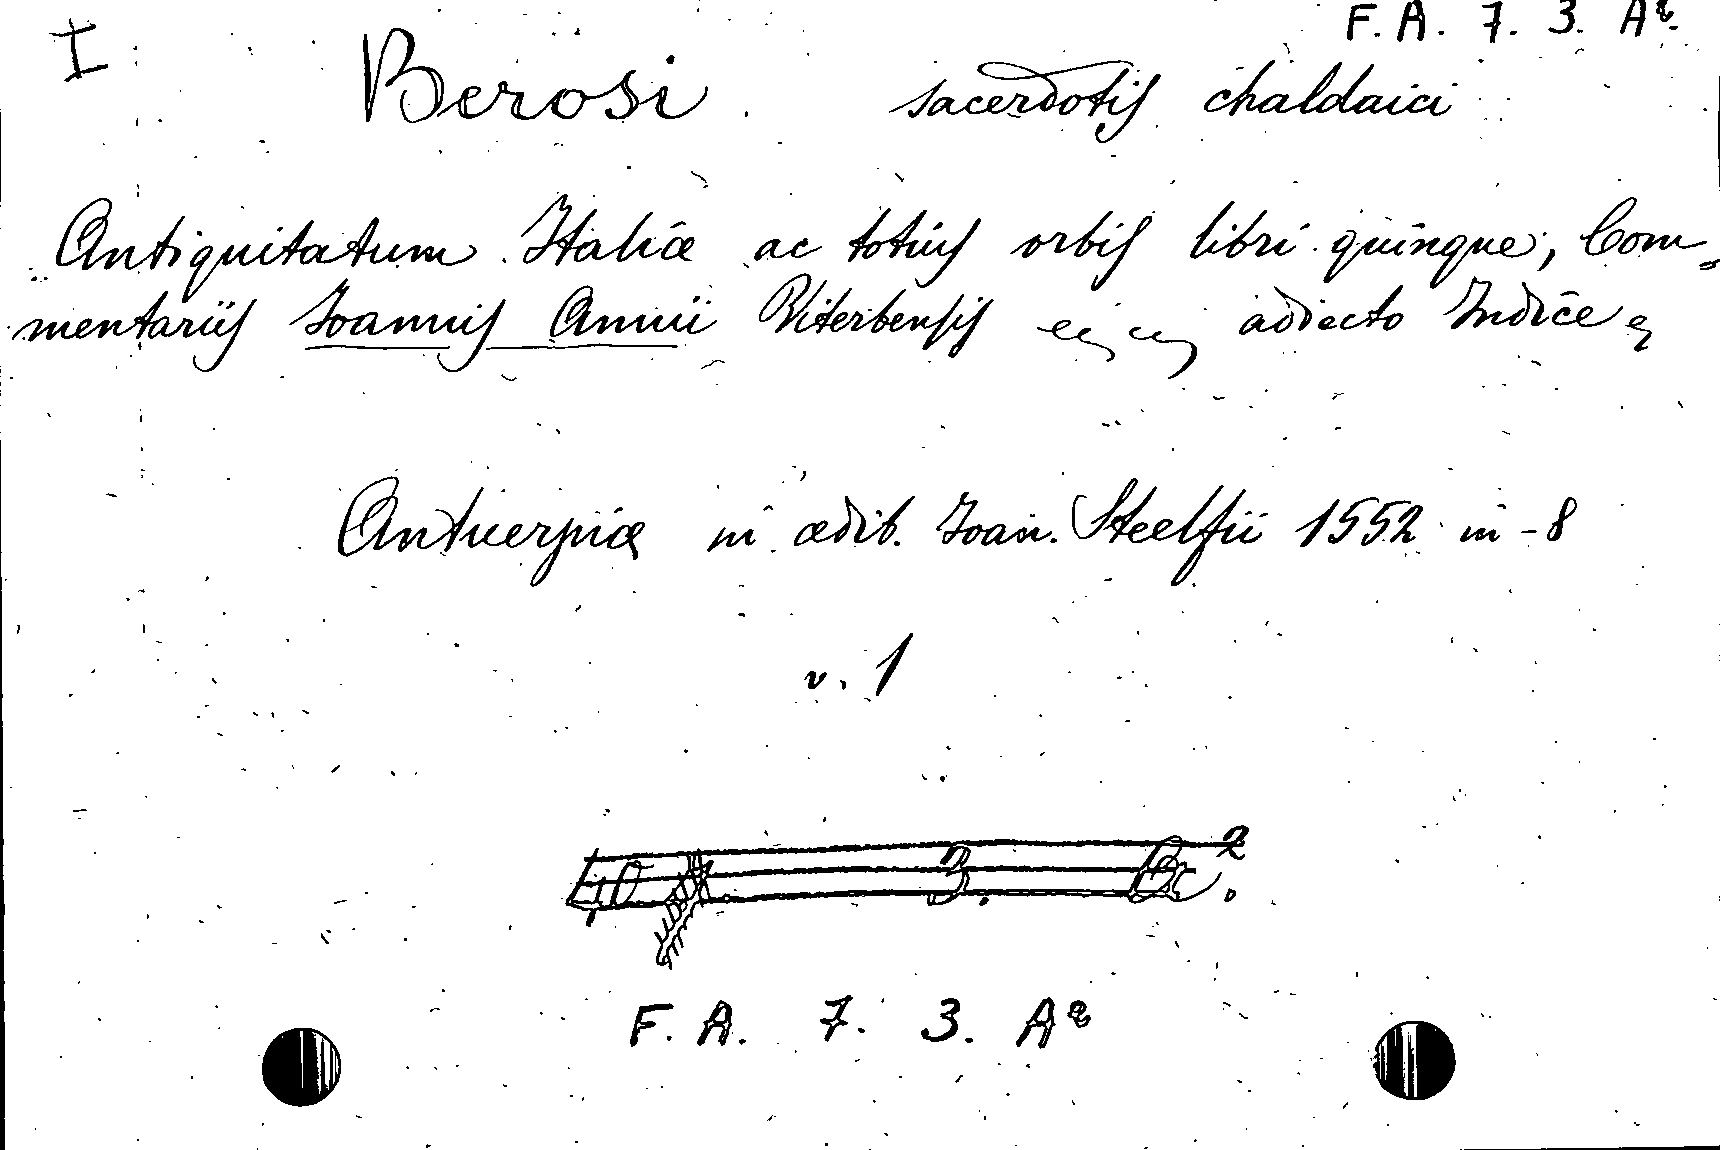 F. A. 7. 3. A2.
I Berosi sacerdotis chaldaici
Antiquitatum Italiæ ac totius orbis libri quinque, Com-
mentariis Joannis Annii Viterbensis adiecto Indice
Antuerpiæ in ædib. Joan. Steelsii 1552 in-8
v. 1
3.
F. A. 7. 3. A2